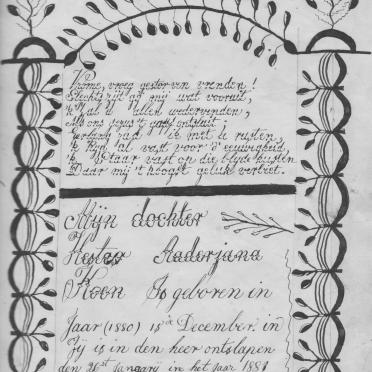 Vrome, vroeg gestorven vrinden!
Slechts zijt gij mij wat vooruit,
'k Zal u allen wedervinden,
als ons Jezus 't graf ontsluit;
verlang zacht 'k met te rusten,
'k Kyd al vast voor d' eeuwigheid,
'k Staar vast op die blyde kusten
Daar mij 't hoogst geluk verbeid.
Mijn dochter
Hester Aadorjana
Koen Is geboren in
Jaar (1880) 15de December, in
Zij is in den heer ontslapen
den 28st Janyarij in het Jaar 1881